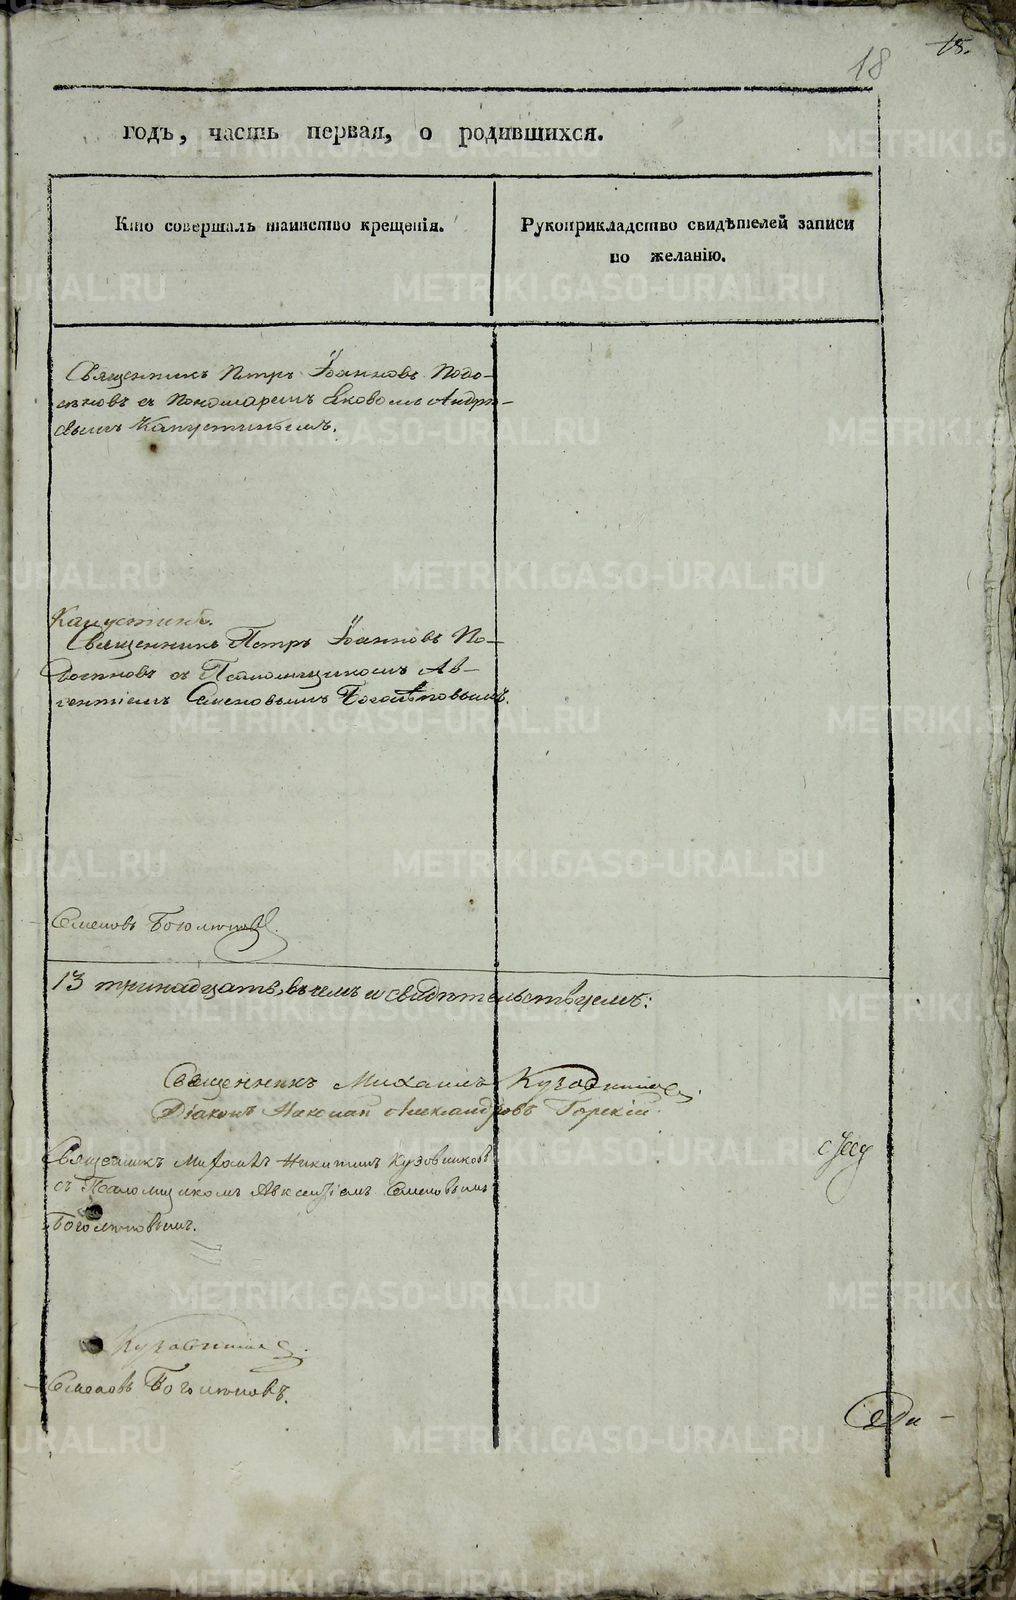 18
15.
годъ, часть первая, о родившихся.
Кто совершалъ таинство крещенія.
Рукоприкладство свидѣтелей записи
по желанію.
Священникъ Петръ Іоанновъ Подо-
съ Пономаремъ Яковомъ Андре-
евымъ Капустинымъ.
Капустинъ.
Священникъ Петръ Іоанновъ По-
съ Псаломщикомъ Ав-
Семеновымъ Боголѣповымъ.
Семеновъ
13 тринадцать, въ чемъ и свидѣтельствуемъ:
Священникъ Михаилъ
Діаконъ Максимъ Александровъ Горскій.
Священникъ Михаилъ Никитинъ
съ Псаломщикомъ Авксентіемъ Семеновымъ
Семеновъ
METRIKI.GASO-URAL.RU